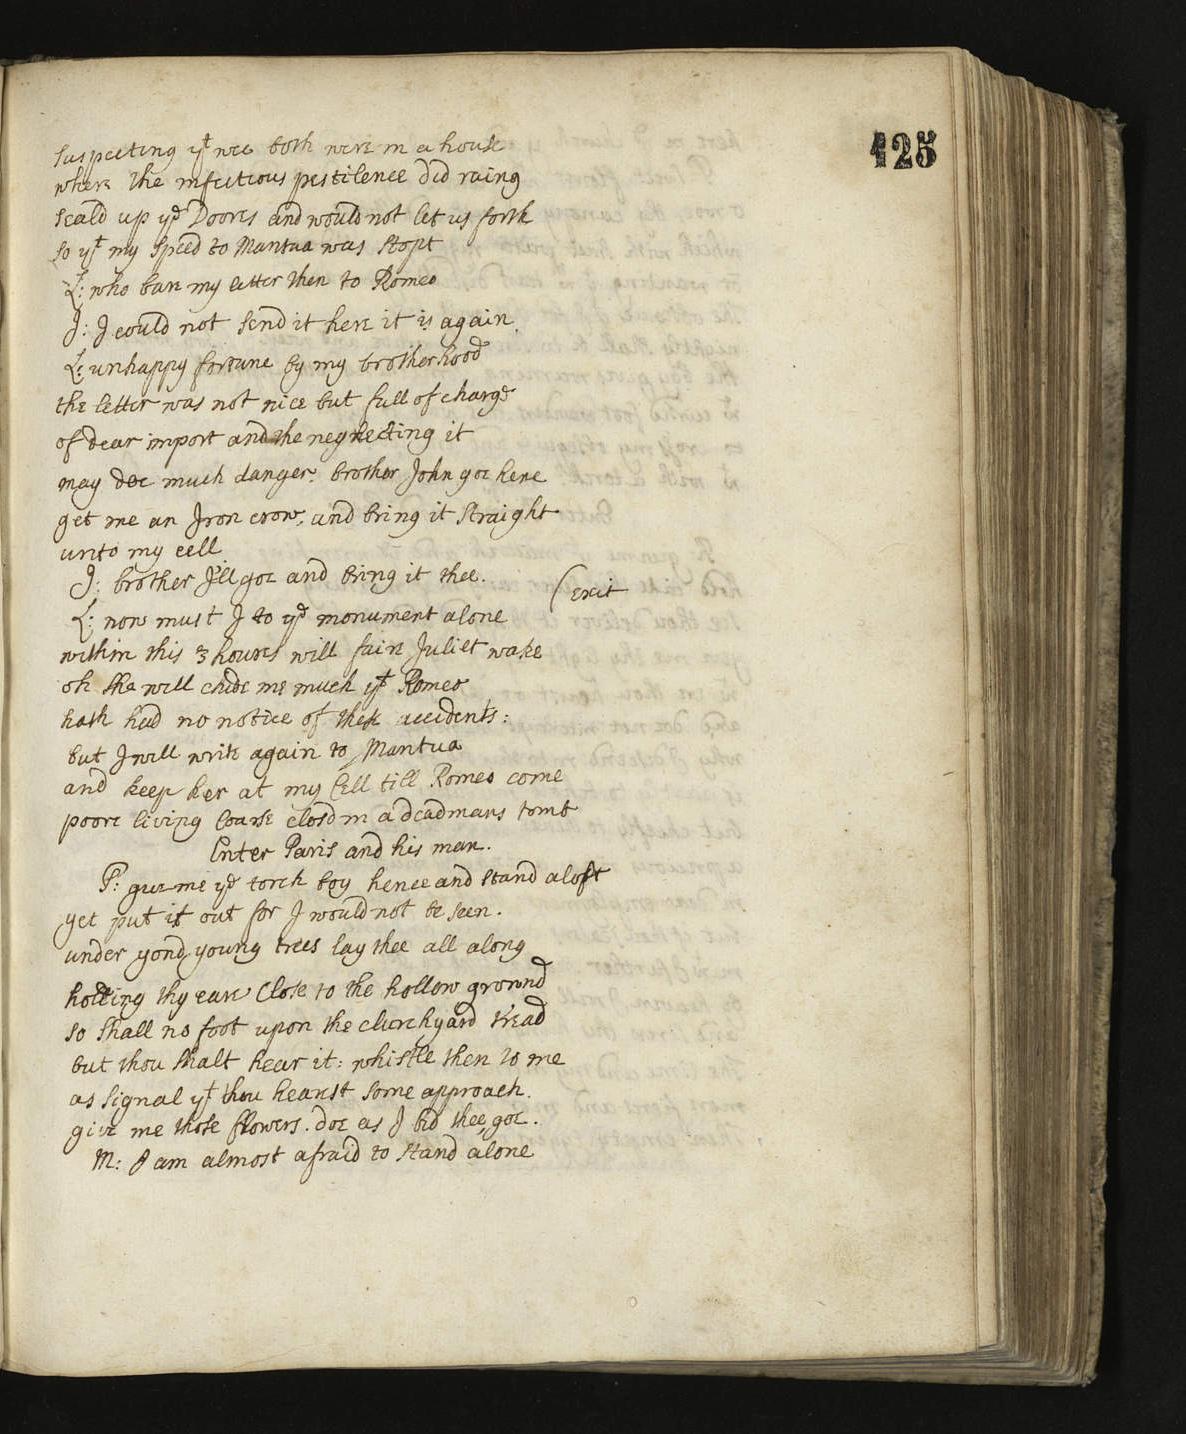 125
suspecting yt wee both were in a house
where the infectious pestilence did raing
seald up ye Doores and would not let us forth
so yt my speed to Mantua was stopt
L: who bare my letter then to Romeo
J: I could not send it here it is again.
L: unhappy fortune by my brotherhood
the letter was not nice but full of charge
of dear import and the neglecting it
may doe much danger. brother John goe hene
get me an Iron crow, and bring it straight
unto my cell
J: brother I'll goe and bring it thee. (exit
L: now must I to ye monument alone
within this 3 houres will faire Juliet wake
oh sha will chide me much yt Romeo
hath had no notice of these accidents:
but I will write again to Mantua
and keep her at my Cell till Romeo come
poore living Coarse closd in a deadmans tomb
Enter Paris and his man.
P: give me ye torch boy hence and stand aloft
yet put it out for I would not be seen.
under yond young trees lay thee all along
holding thy eare Close to the hollow ground
so shall no foot upon the churchyard tread
but thou shalt hear it: whistle then to me
as signal yt thou hearst some approach.
give me those flowers. doe as I bid thee, goe.
M: I am almost afraid to stand alone